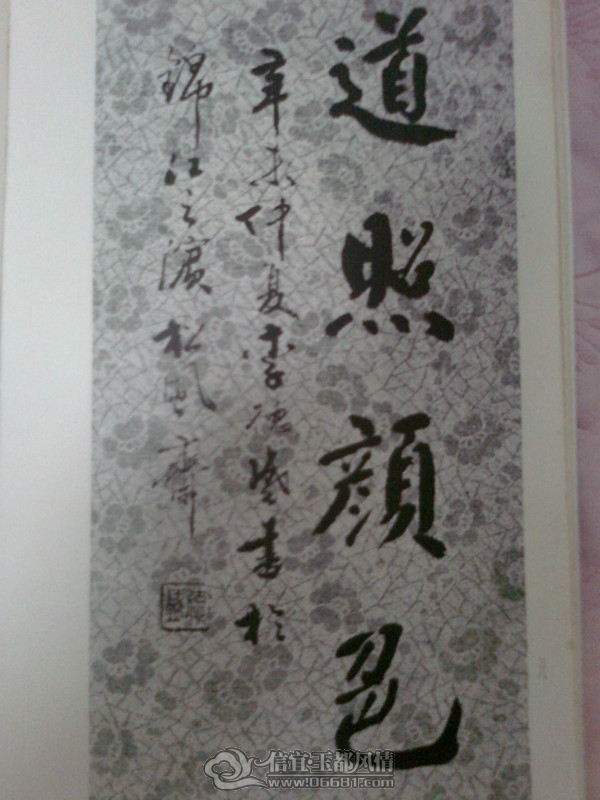 道照顔色
辛未仲夏李德書於
錦江之濱松風齋
信宜·玉都风情
www.06681.com